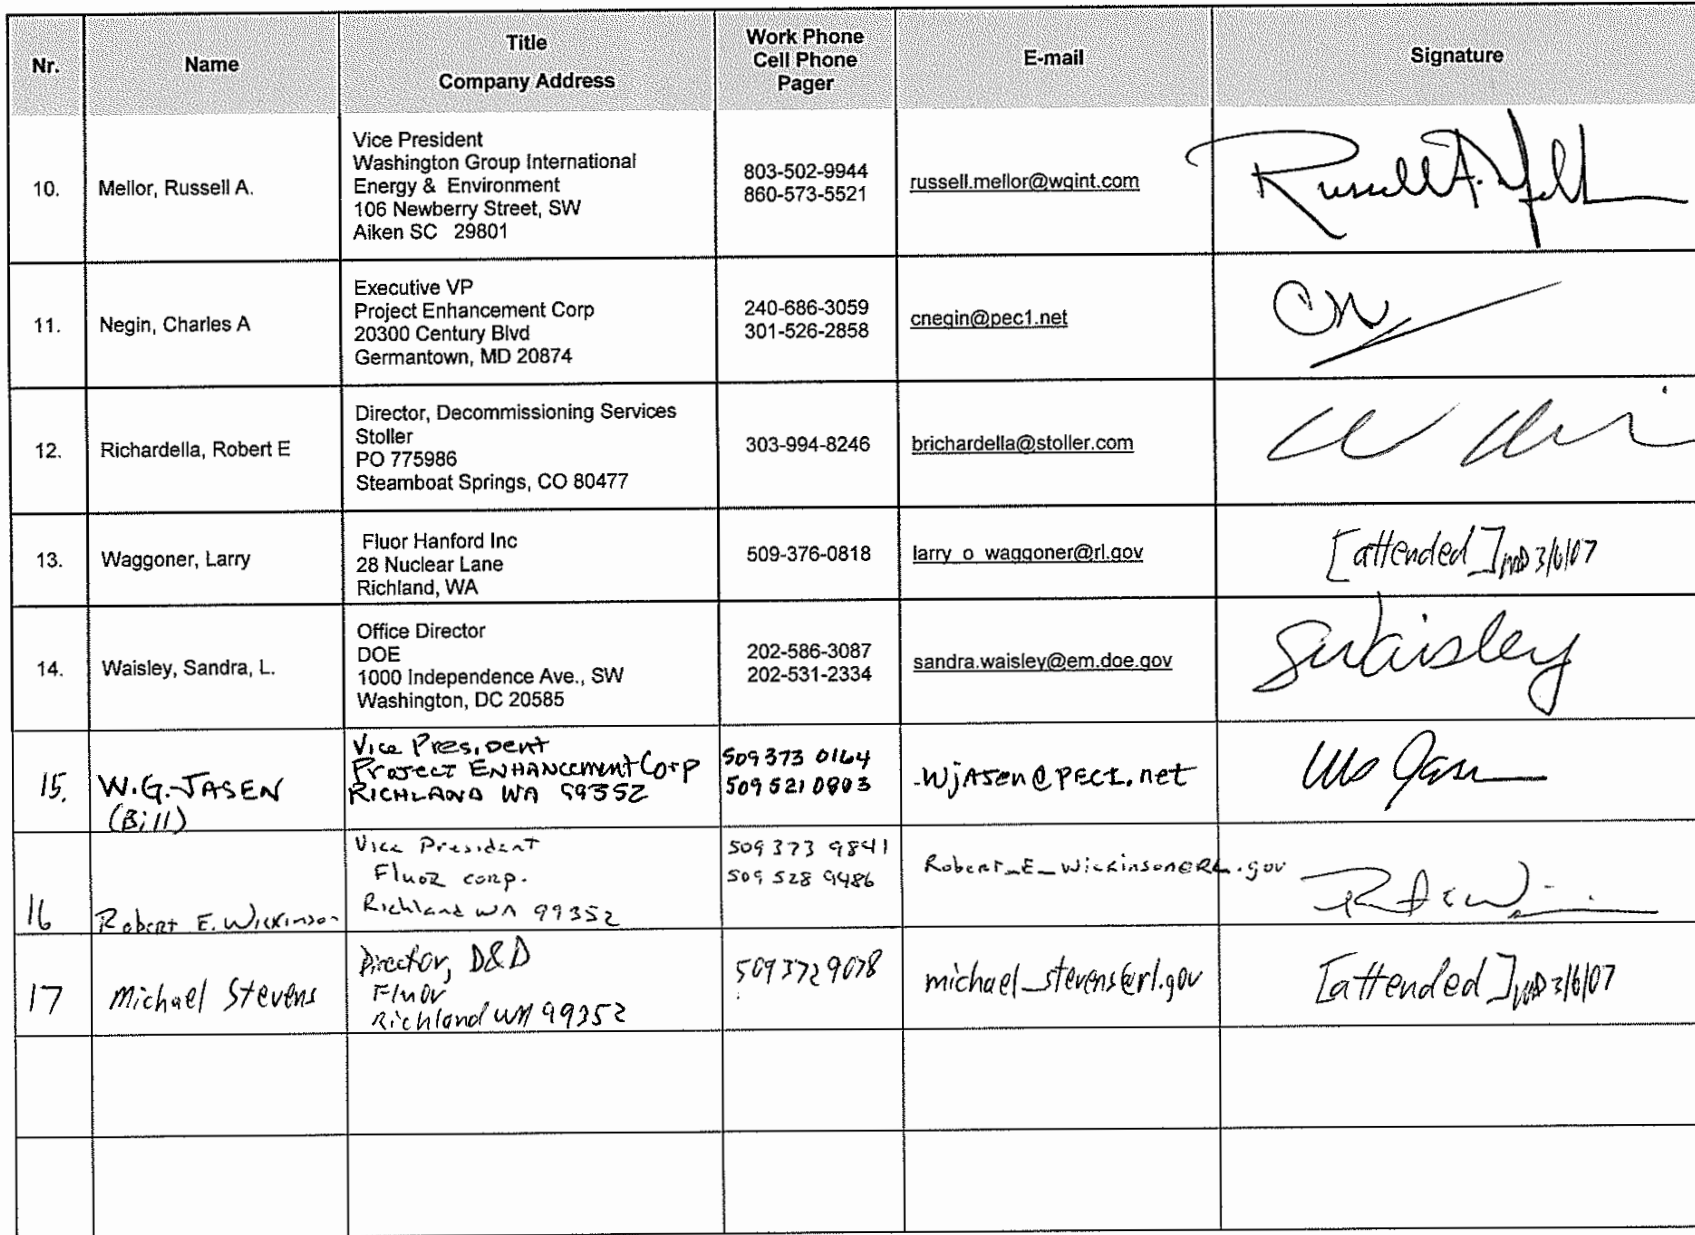 Nr.
Name
Title
Company Address
Work Phone
Cell Phone
Pager
E-mail
Signature
10.
Mellor, Russell A.
Vice President
Washington Group International
Energy & Environment
106 Newberry Street, SW
Aiken SC 29801
803-502-9944
860-573-5521
russell.mellor@wgint.com
Russell A. Mell
11.
Negin, Charles A
Executive VP
Project Enhancement Corp
20300 Century Blvd
Germantown, MD 20874
240-686-3059
301-526-2858
cnegin@pec1.net
CN
12.
Richardella, Robert E
Director, Decommissioning Services
Stoller
PO 775986
Steamboat Springs, CO 80477
303-994-8246
brichardella@stoller.com
13.
Waggoner, Larry
Fluor Hanford Inc
28 Nuclear Lane
Richland, WA
509-376-0818
larry_o_waggoner@rl.gov
[attended] 3/6/07
14.
Waisley, Sandra, L.
Office Director
DOE
1000 Independence Ave., SW
Washington, DC 20585
202-586-3087
202-531-2334
sandra.waisley@em.doe.gov
SWaisley
15.
W.G. JASEN
(Bill)
Vice President
Project ENHANCEMENT Corp
RICHLAND WA 99352
509 373 0164
509 521 0803
WjAsen@PEC1.net
16
Robert E. Wilkinson
Vice President
Fluor corp.
Richland WA 99352
509 373 9841
509 528 9486
Robert_E_Wilkinson@RL.gov
17
Michael Stevens
Director, D&D
Fluor
Richland WA 99352
509 372 9078
michael_stevens@rl.gov
[attended] 3/6/07